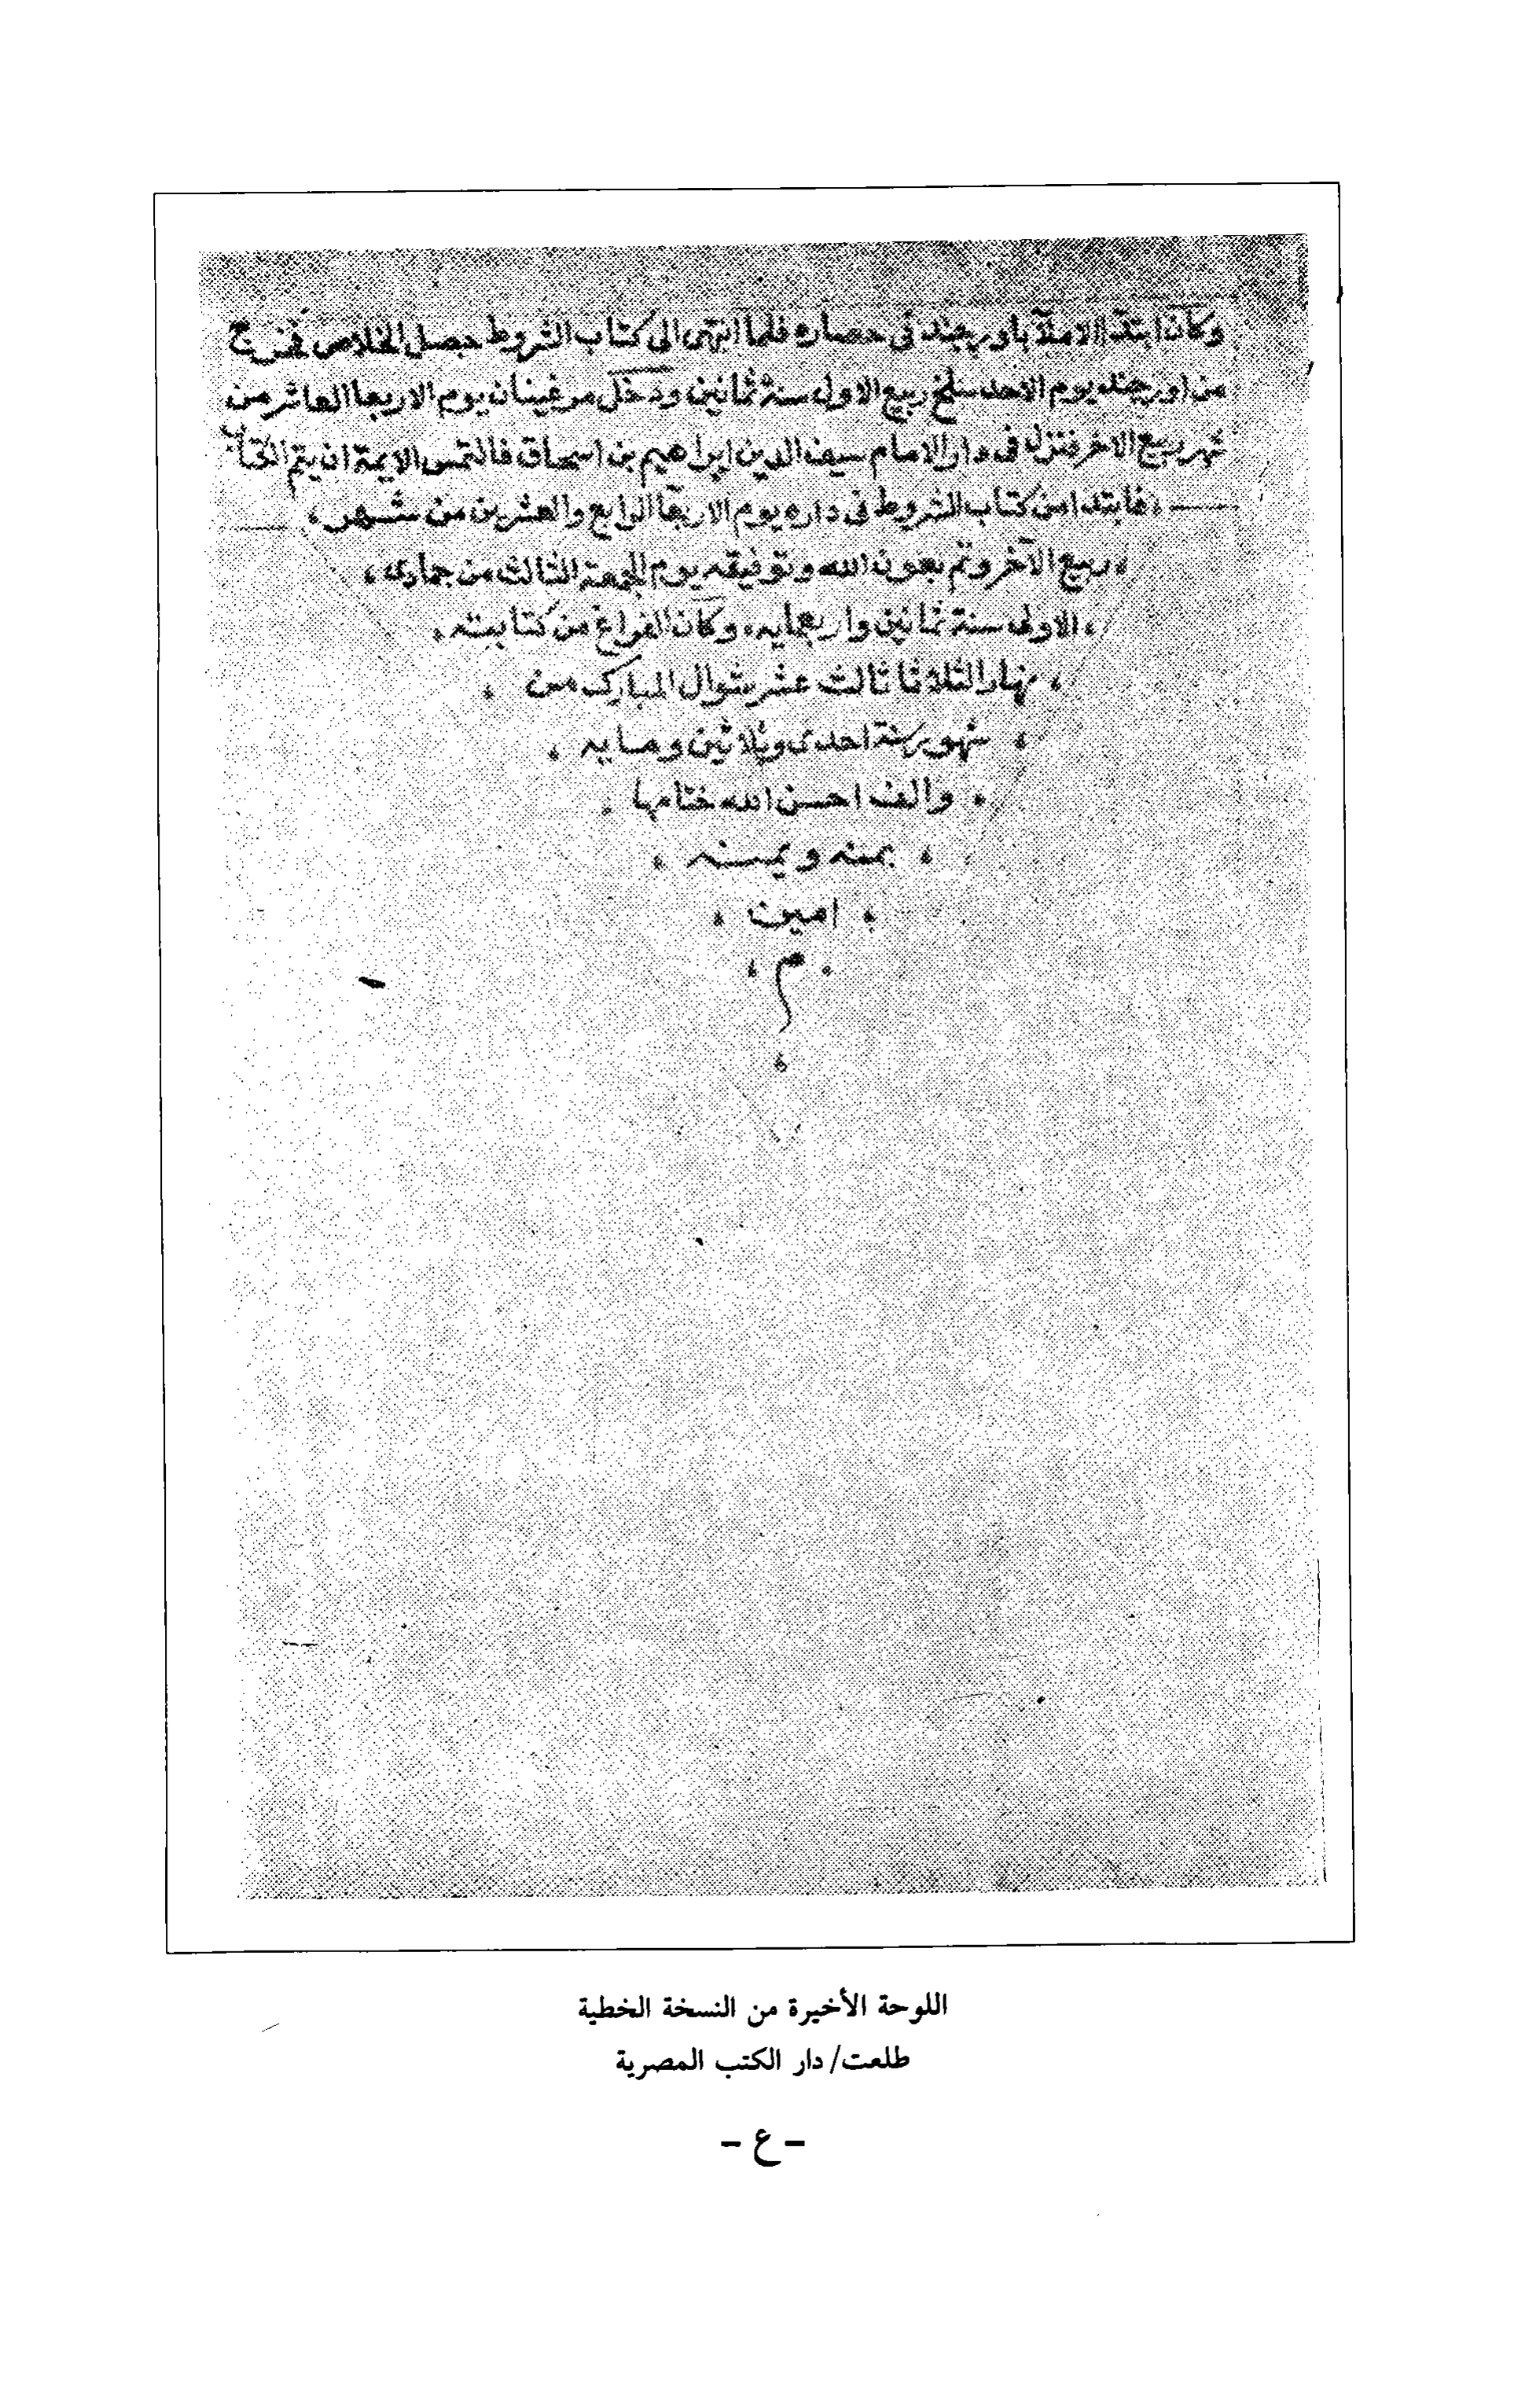 وكان ابتدا الاملآ باورجند فى حصاره فلما انتهى الى كتاب الشروط حصل الخلاص فخرج
من اورجند يوم الاحد سلخ ربيع الاول سنة ثمانين ودخل مرغينان يوم الاربعا العاشر من
شهر ربيع الاخر فنزل فى دار الامام سيف الدين ابراهيم بن اسحاق فالتمس الايمة ان يتم الكتاب
فابتدا من كتاب الشروط فى داره يوم الاربعآ الرابع والعشرين من شهر
ربيع الآخر وتم بعون الله وتوفيقه يوم الجمعة الثالث من جمادى
الاولى سنة ثمانين واربعمايه وكان الفراغ من كتابته
نهار الثلاثا ثالث عشر شوال المبارك من
شهور سنة احدى وثلاثين ومايه
والف احسن الله ختامها
بمنه ويمنه
امين
م
اللوحة الأخيرة من النسخة الخطية
طلعت/ دار الكتب المصرية
- ع -